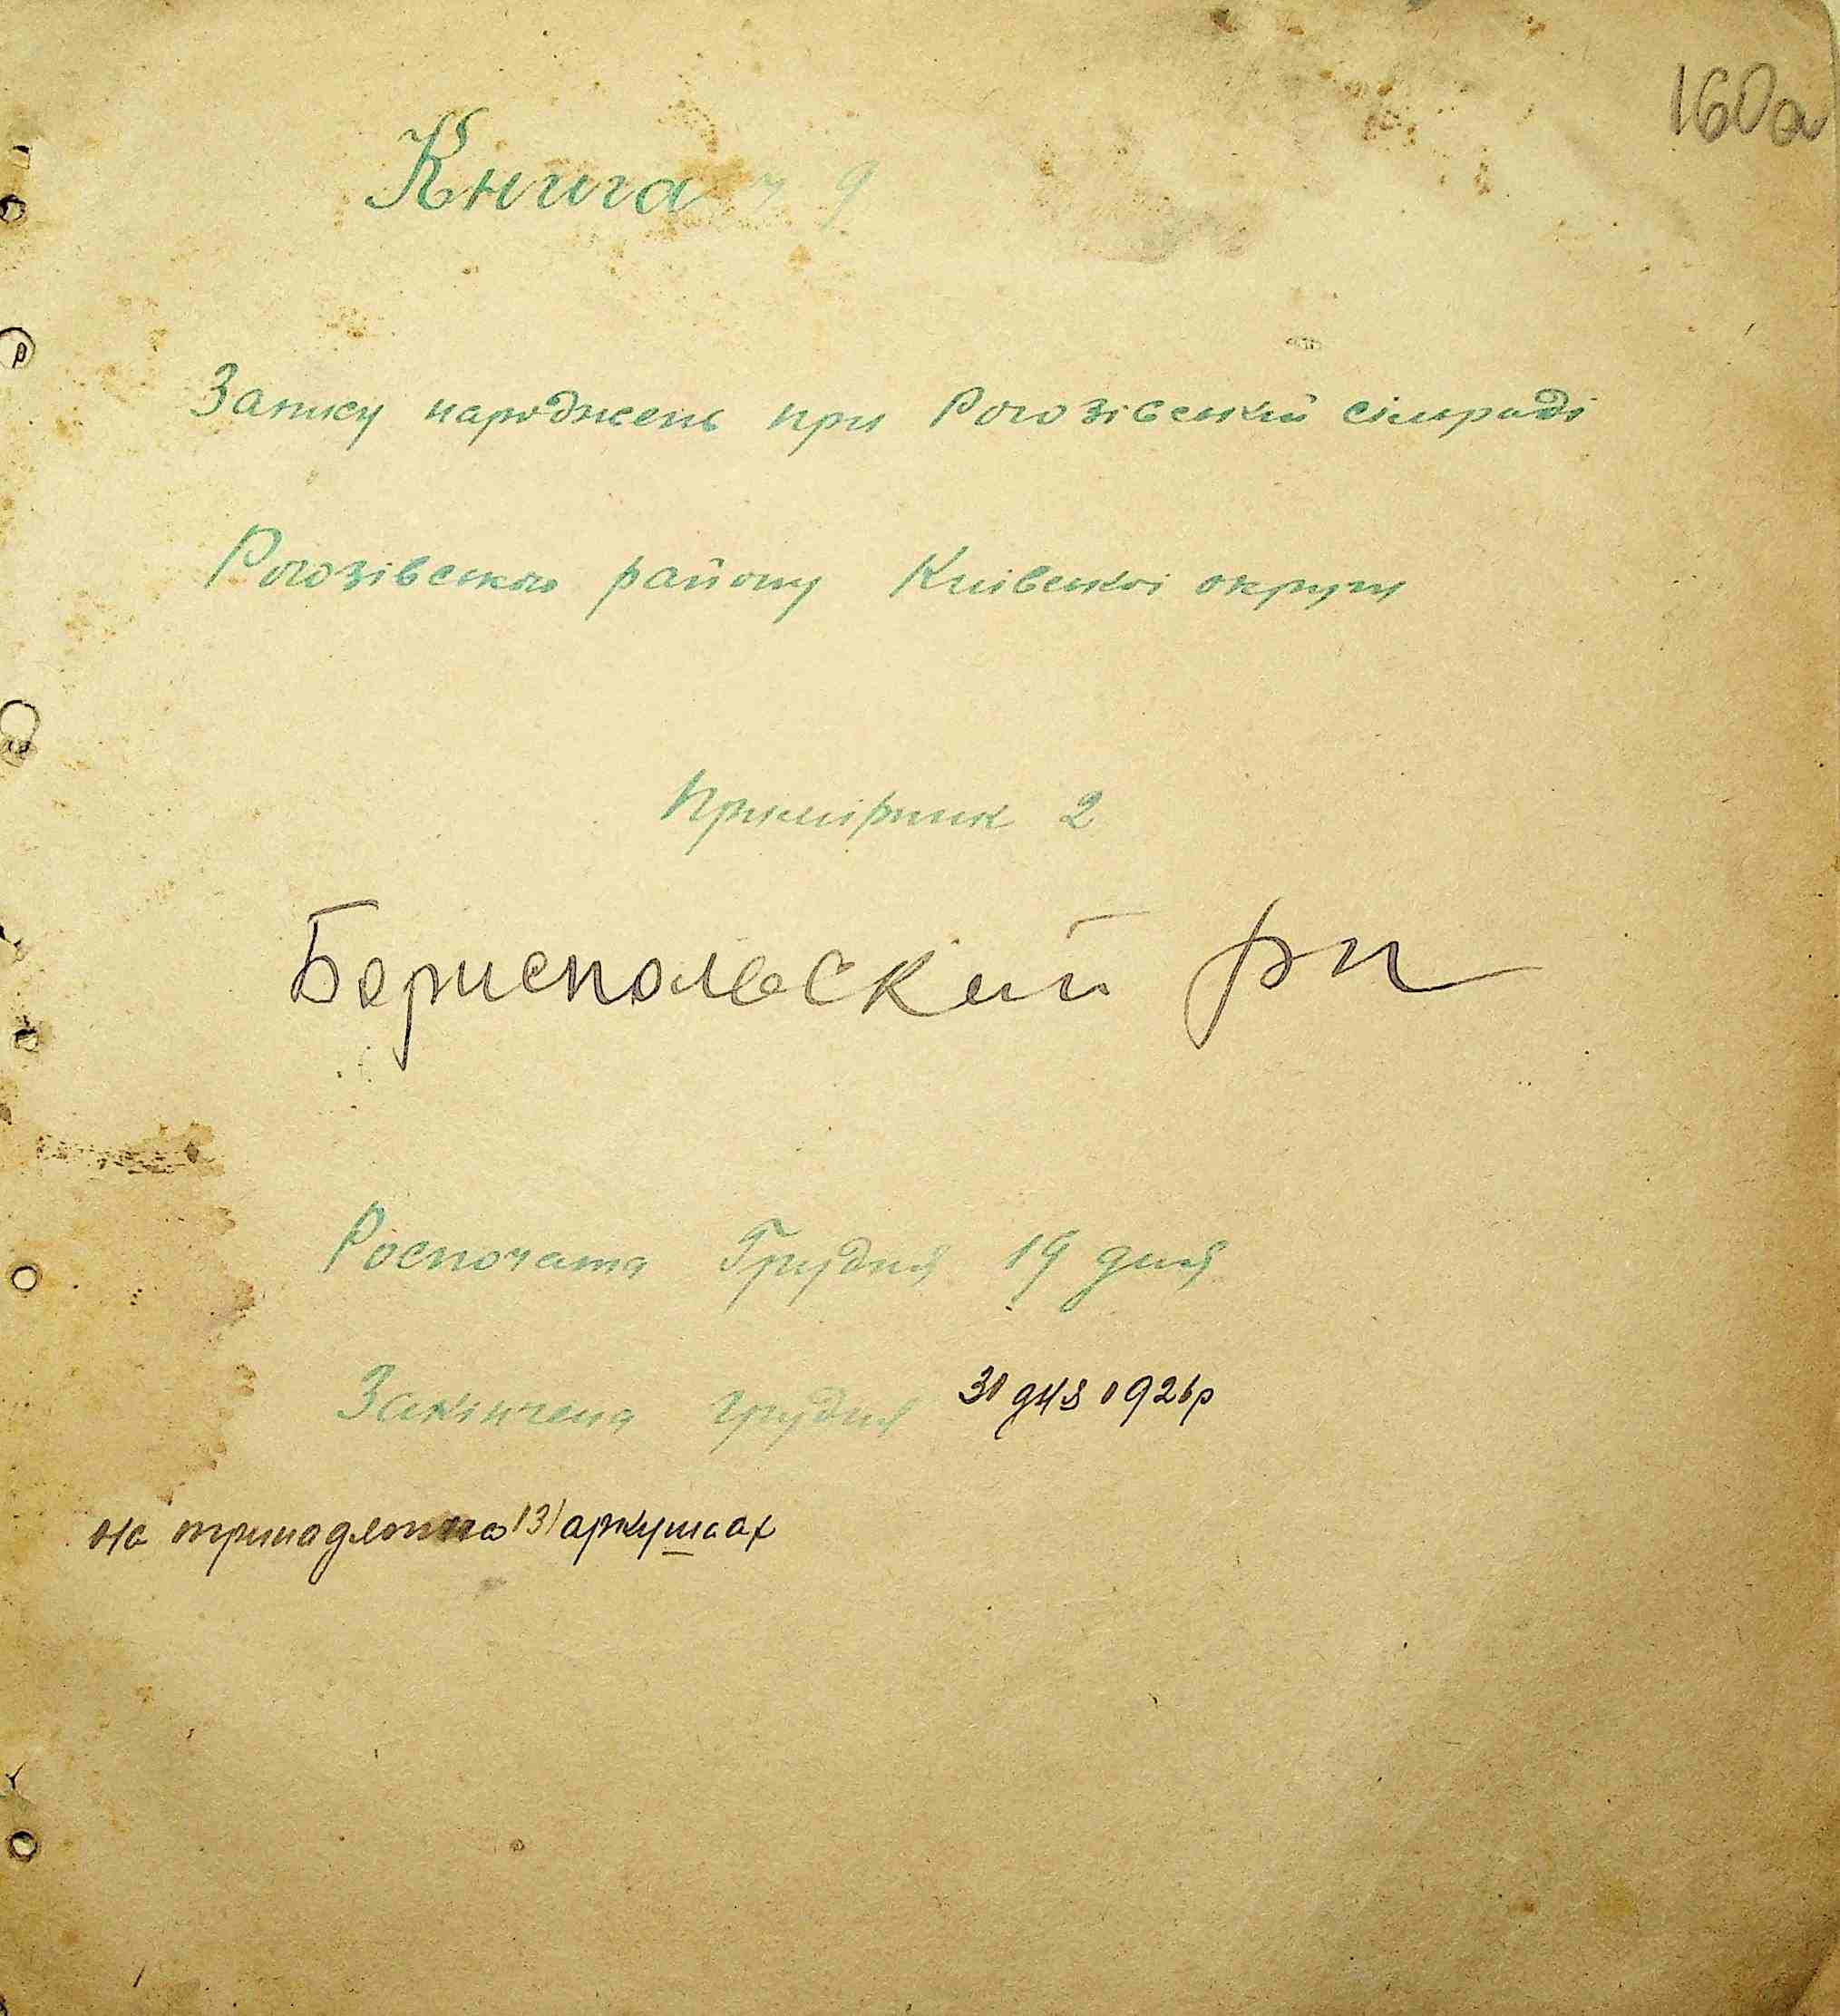 160а
Книга ч 9
Запису народжень при Рогозівській сільраді
Рогозівського району Київської округи
Примірник 2
Бориспольский рн
Роспочата Грудня 19 дня
Закінчена грудня 31 дня 1926р
на тринадцяти 13/ аркушах